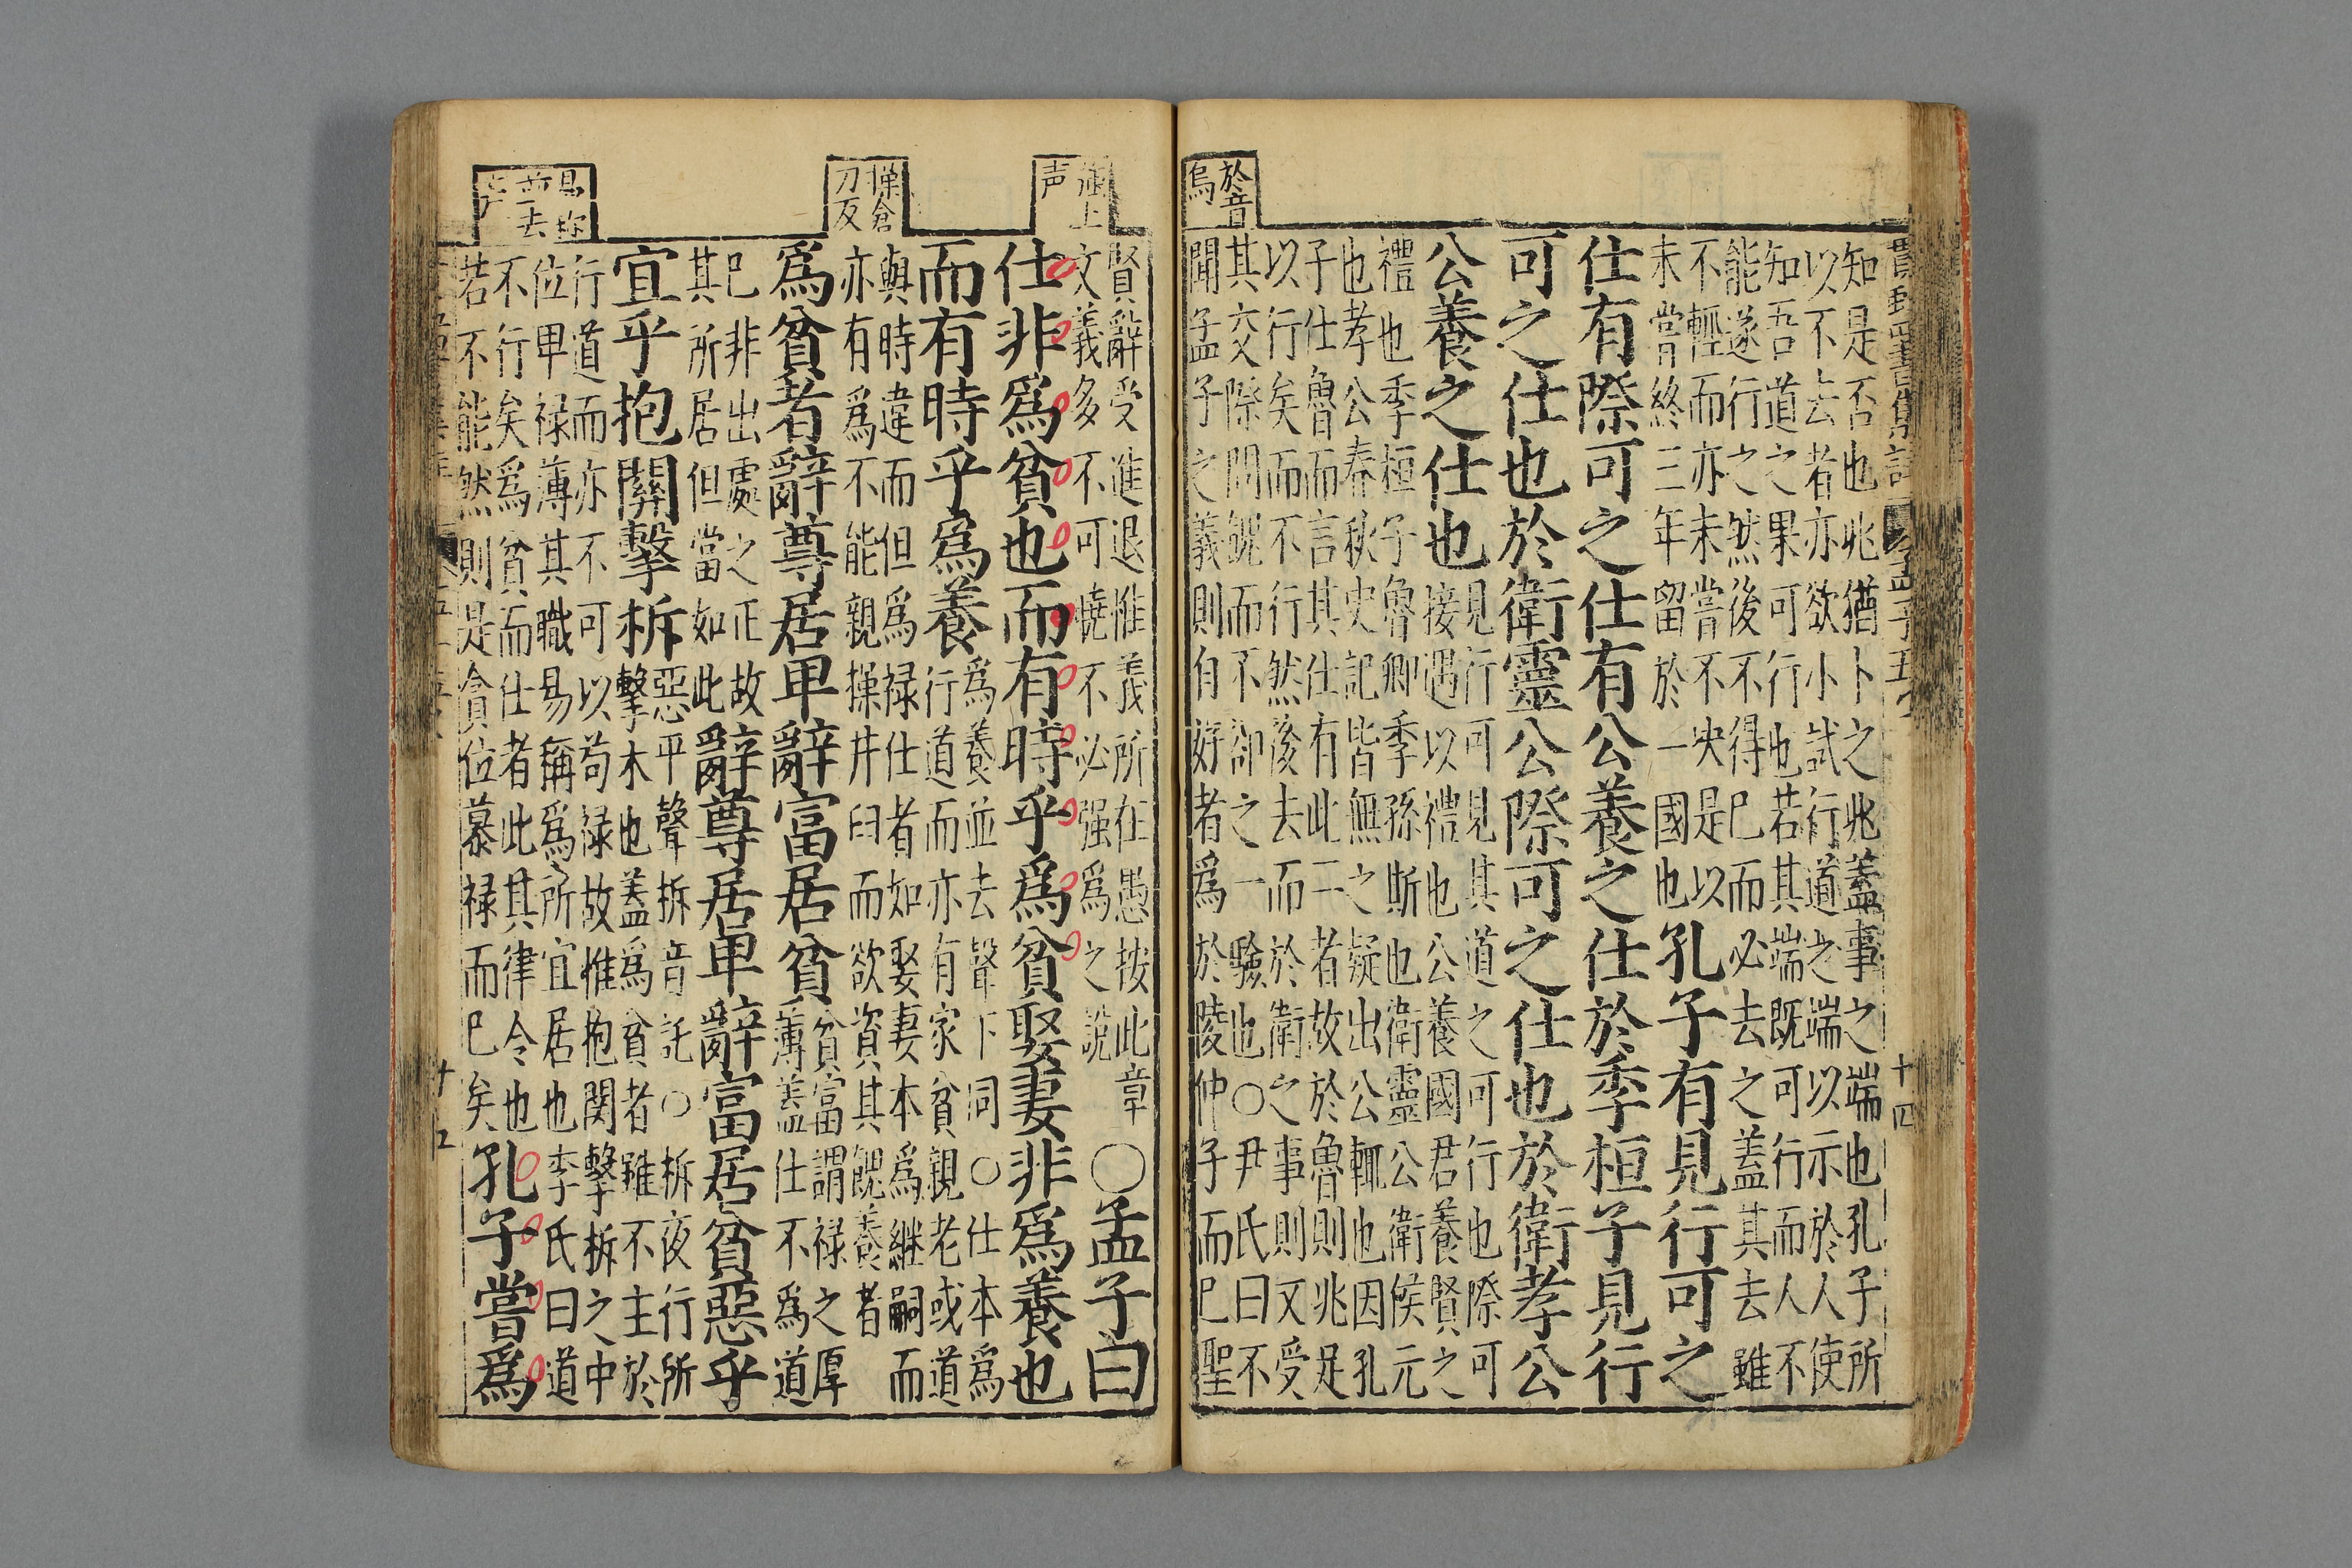 孟子五
十四
知是否也兆猶卜之兆蓋事之端也孔子所
以不去者亦欲小試行道之端以示於人使
知吾道之果可行也若其端既可行而人不
能遂行之然後不得已而必去之蓋其去雖
不輕而亦未嘗不决是以
未嘗終三年留於一國也
孔子有見行可之
仕有際可之仕有公養之仕於季桓子見行
可之仕也於衛靈公際可之仕也於衛孝公
公養之仕也
見行可見其道之可行也際可
接遇以禮也公養國君養賢之
禮也季桓子魯卿季孫斯也衛靈公衛侯元
也孝公春秋史記皆無之疑出公輒也因孔
子仕魯而言其仕有此二者故於魯則兆足
以行矣而不行然後去而於衛之事則又受
其交際問餽而不卻之一驗也○尹氏曰不
聞孟子之義則自好者爲於陵仲子而已聖
於音
烏
賢辭受進退惟義所在愚按此章
文義多不可曉不必强爲之說
○孟子曰
上
声
仕非爲貧也而有時乎爲貧娶妻非爲養也
而有時乎爲養
爲養並去聲下同○仕本爲
行道而亦有家貧親老或道
與時違而但爲禄仕者如娶妻本爲繼嗣而
亦有爲不能親操井臼而欲資其餽養者
操倉
刀反
爲貧者辭尊居卑辭富居貧
貧富謂禄之厚
薄蓋仕不爲道
已非出處之正故
其所居但當如此
辭尊居卑辭富居貧惡乎
宜乎抱關擊柝
惡平聲柝音託○柝夜行所
擊木也蓋爲貧者雖不主於
行道而亦不可以苟禄故惟抱関擊柝之中
位卑禄薄其職易稱爲所宜居也李氏曰道
不行矣爲貧而仕者此其律令也
若不能然則是貪位慕禄而已矣
孔子嘗爲